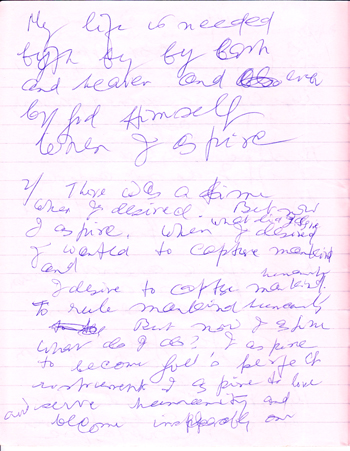 My life is needed
both by by both
and heaven and even
by God Himself
when I aspire
2/ There was a time
when I desired. But now
I aspire. When I desired what did I do
I wanted to capture mankind
and humanity
I desire to mankind.
To rule mankind humanity
But now I aspire
what do I do? I aspire
to become God's perfect
instrument I aspire to love
and serve humanity and
become inseparably one